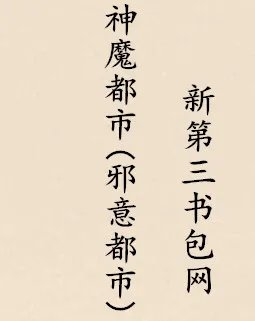 神魔都市(邪意都市)
新第三书包网